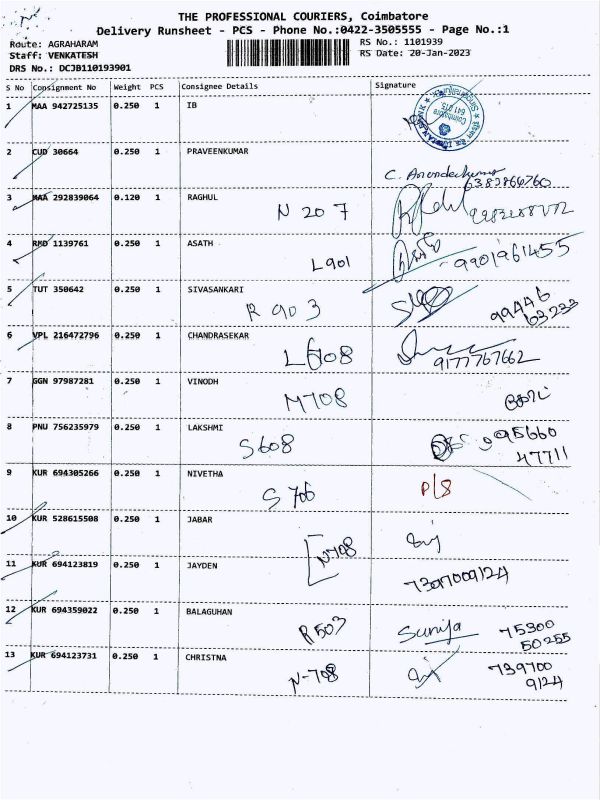 THE PROFESSIONAL COURIERS, Coimbatore
Delivery Runsheet - PCS - Phone No.:0422-3505555 - Page No.:1
Route: AGRAHARAM RS No.: 1101939
Staff: VENKATESH RS Date: 20-Jan-2023
DRS No.: DCJB110193901
S No Consignment No Weight PCS Consignee Details Signature
1 MAA 942725135 0.250 1 IB
Coimbatore
641 015
2 CUD 30664 0.250 1 PRAVEENKUMAR
C. Anandakumar
6382866760
3 MAA 292839064 0.120 1 RAGHUL
N 207
4 RMD 1139761 0.250 1 ASATH
L901 9901961455
5 TUT 350642 0.250 1 SIVASANKARI
R 903 99446
03233
6 VPL 216472796 0.250 1 CHANDRASEKAR
L608 9177767662
7 GGN 97987281 0.250 1 VINODH
M708
8 PNU 756235979 0.250 1 LAKSHMI
S608 995660
47711
9 KUR 694305266 0.250 1 NIVETHA
S 706 P/S
10 KUR 528615508 0.250 1 JABAR
N708
11 KUR 694123819 0.250 1 JAYDEN
7397009124
12 KUR 694359022 0.250 1 BALAGUHAN
R503 Suniya 75300
50255
13 KUR 694123731 0.250 1 CHRISTNA
N-708 739700
9124